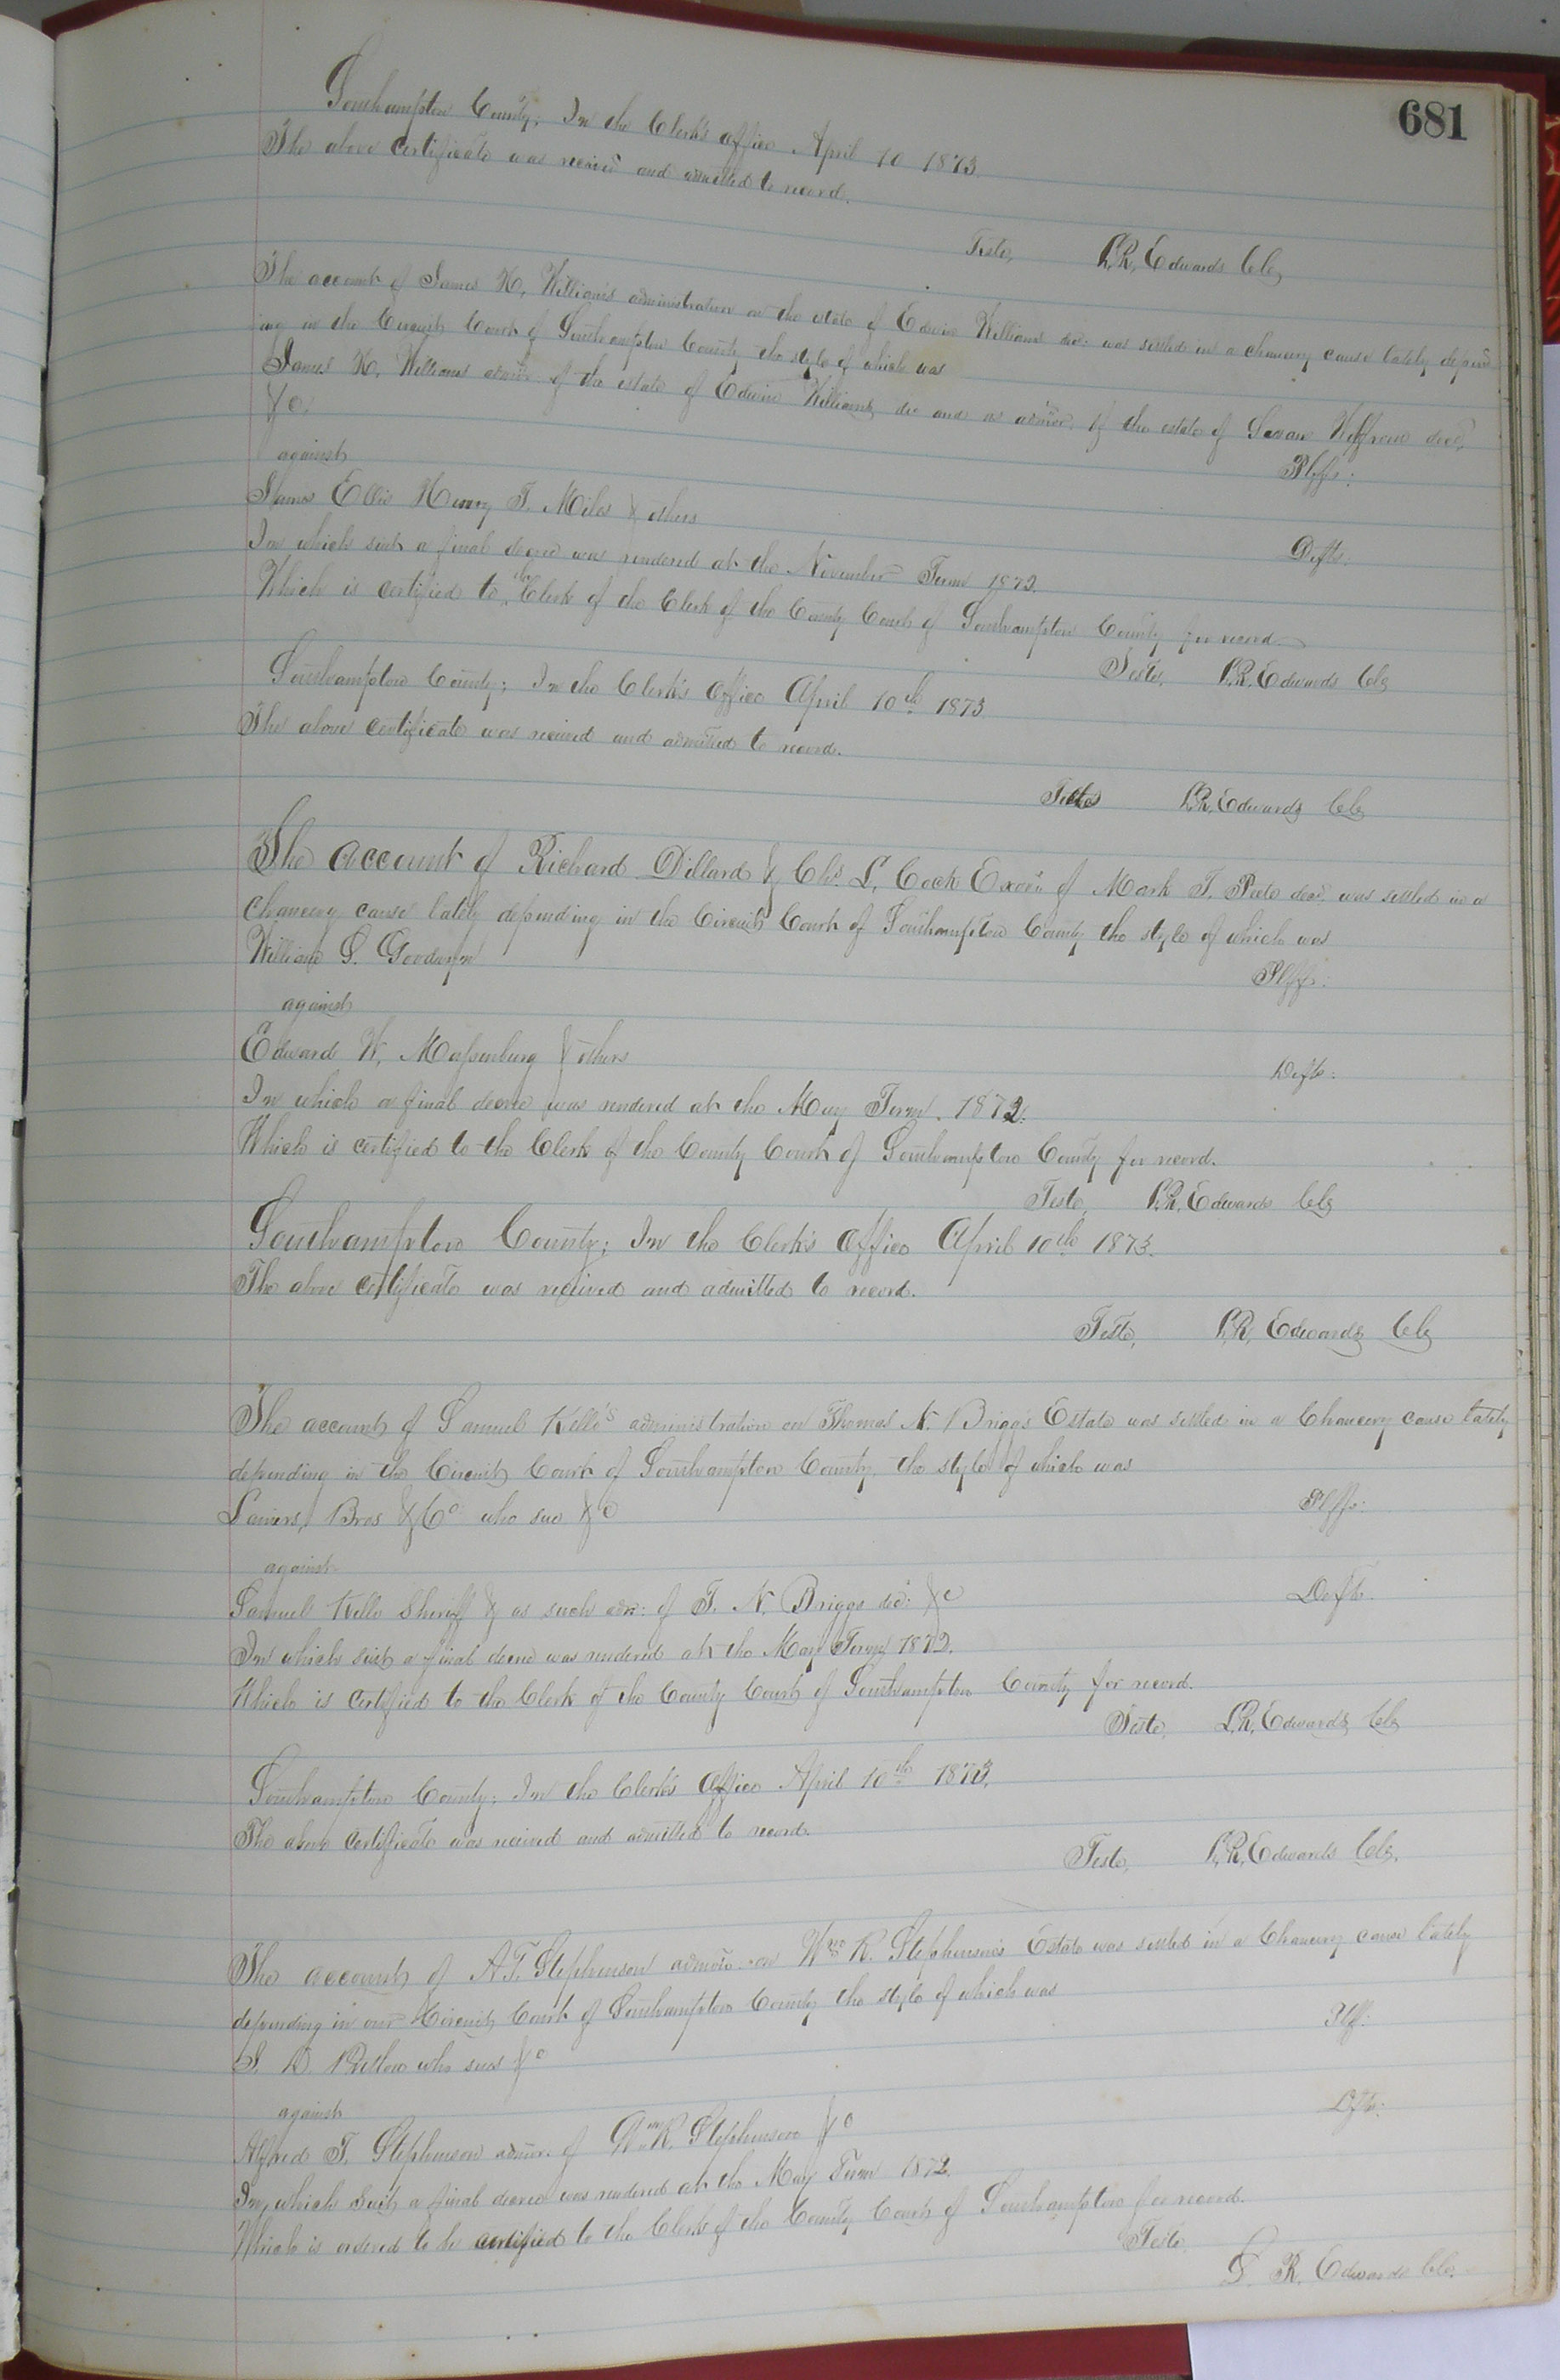 681
Southampton County; In the Clerk's office April 10 1873.
The above certificate was received and admitted to record.
Teste, L.R. Edwards Clk
The account of James H. Williams administration on the estate of Edwin Williams dec: was settled in a chancery cause lately depend
ing in the Circuit Court of Southampton County the style of which was
James H. Williams admor of the estate of Edwin Williams dec and as admor. of the estate of dec'd.
&c. Plffs:
against
James Ellis Henry T. Miles & others Defts.
In which suit a final decree was rendered at the November Term 1872.
Which is certified to the Clerk of the Clerk of the County Court of Southampton County for record.
Teste, L.R. Edwards Clk
Southampton County; In the Clerk's Office April 10th 1873
The above certificate was received and admitted to record.
Teste L.R. Edwards Clk
The account of Richard Dillard & Chs. L. Cock Exors of Mark T. Peete dec'd. was settled in a
Chancery cause lately depending in the Circuit Court of Southampton County the style of which was
William S. Goodwyn Plff:
against
Edward W. Massenburg & others Defts:
In which a final decree was rendered at the May Term. 1872.
Which is certified to the Clerk of the County Court of Southampton County for record.
Teste, L.R. Edwards Clk
Southampton County; In the Clerk's Office April 10th 1873.
The above certificate was received and admitted to record.
Teste, L.R. Edwards Clk
The account of Samuel Kello's administration on Thomas N. Briggs Estate was settled in a Chancery cause lately
depending in the Circuit Court of Southampton County, the style of which was
Bros & Co who sue &c Plffs:
against
Samuel Kello Sheriff & as such adr: of T. N. Briggs dec: &c Defts.
In which suit a final decree was rendered at the May Term 1872.
Which is certified to the Clerk of the County Court of Southampton County for record.
Teste, L.R. Edwards Clk
Southampton County; In the Clerk's Office April 10th 1873.
The above certificate was received and admitted to record.
Teste, L.R. Edwards Clk.
The account of A.T. Stephenson admor. on Wm R. Stephenson's Estate was settled in a Chancery cause lately
depending in our Circuit Court of Southampton County the style of which was
S. D. who sues &c Plff:
against
Alfred T. Stephenson admor. of Wm R. Stephenson &c Dfts:
In which suit a final decree was rendered at the May Term 1872.
Which is ordered to be certified to the Clerk of the County Court of Southampton for record.
Teste
L. R. Edwards Clk.